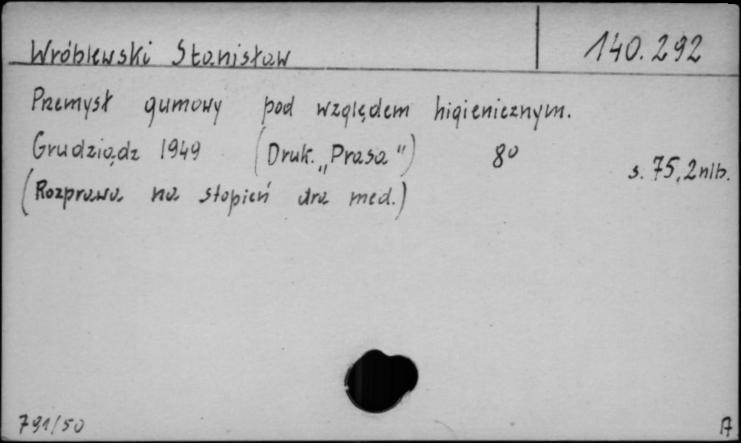 Wróblewski Stanisław 140.292
Przemysł gumowy pod względem higienicznym.
Grudziądz 1949 (Druk. „Prasa") 8° s. 75, 2 nlb.
(Rozprawa na stopień dra med.)
791/50 A